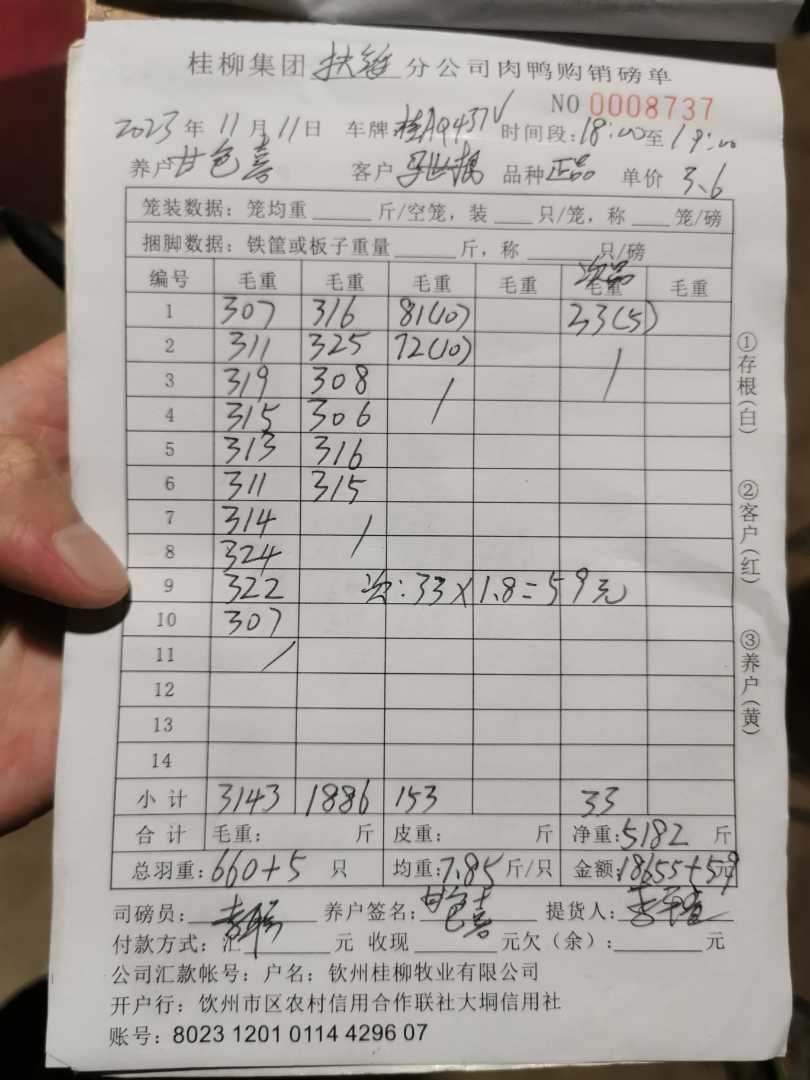 桂柳集团 扶绥 分公司肉鸭购销磅单
NO 0008737
2023年 11月 11日 车牌: 桂A9437V 时间段: 18:00至 19:00
养户 甘色喜 客户 品种 正品 单价 3.6
笼装数据: 笼均重 ____ 斤/空笼, 装 ___ 只/笼, 称 ___ 笼/磅
捆脚数据: 铁筐或板子重量 ____ 斤, 称 ____ 只/磅
编号 毛重 毛重 毛重 毛重 次品 毛重 毛重
1 307 316 81(10) 33(5)
2 311 325 72(10) /
3 319 308 /
4 315 306
5 313 316
6 311 315
7 314 /
8 324
9 322 次: 33×1.8=59元
10 307
11 /
12
13
14
小计 3143 1886 153 33
合计 毛重: 斤 皮重: 斤 净重: 5182 斤
总羽重: 660+5 只 均重: 7.85 斤/只 金额: 18655+59 元
司磅员: 养户签名: 甘色喜 提货人:
付款方式: 汇 ____ 元 收现 ____ 元欠(余): ____ 元
公司汇款帐号: 户名: 钦州桂柳牧业有限公司
开户行: 钦州市区农村信用合作联社大垌信用社
账号: 8023 1201 0114 4296 07
①存根(白)
②客户(红)
③养户(黄)